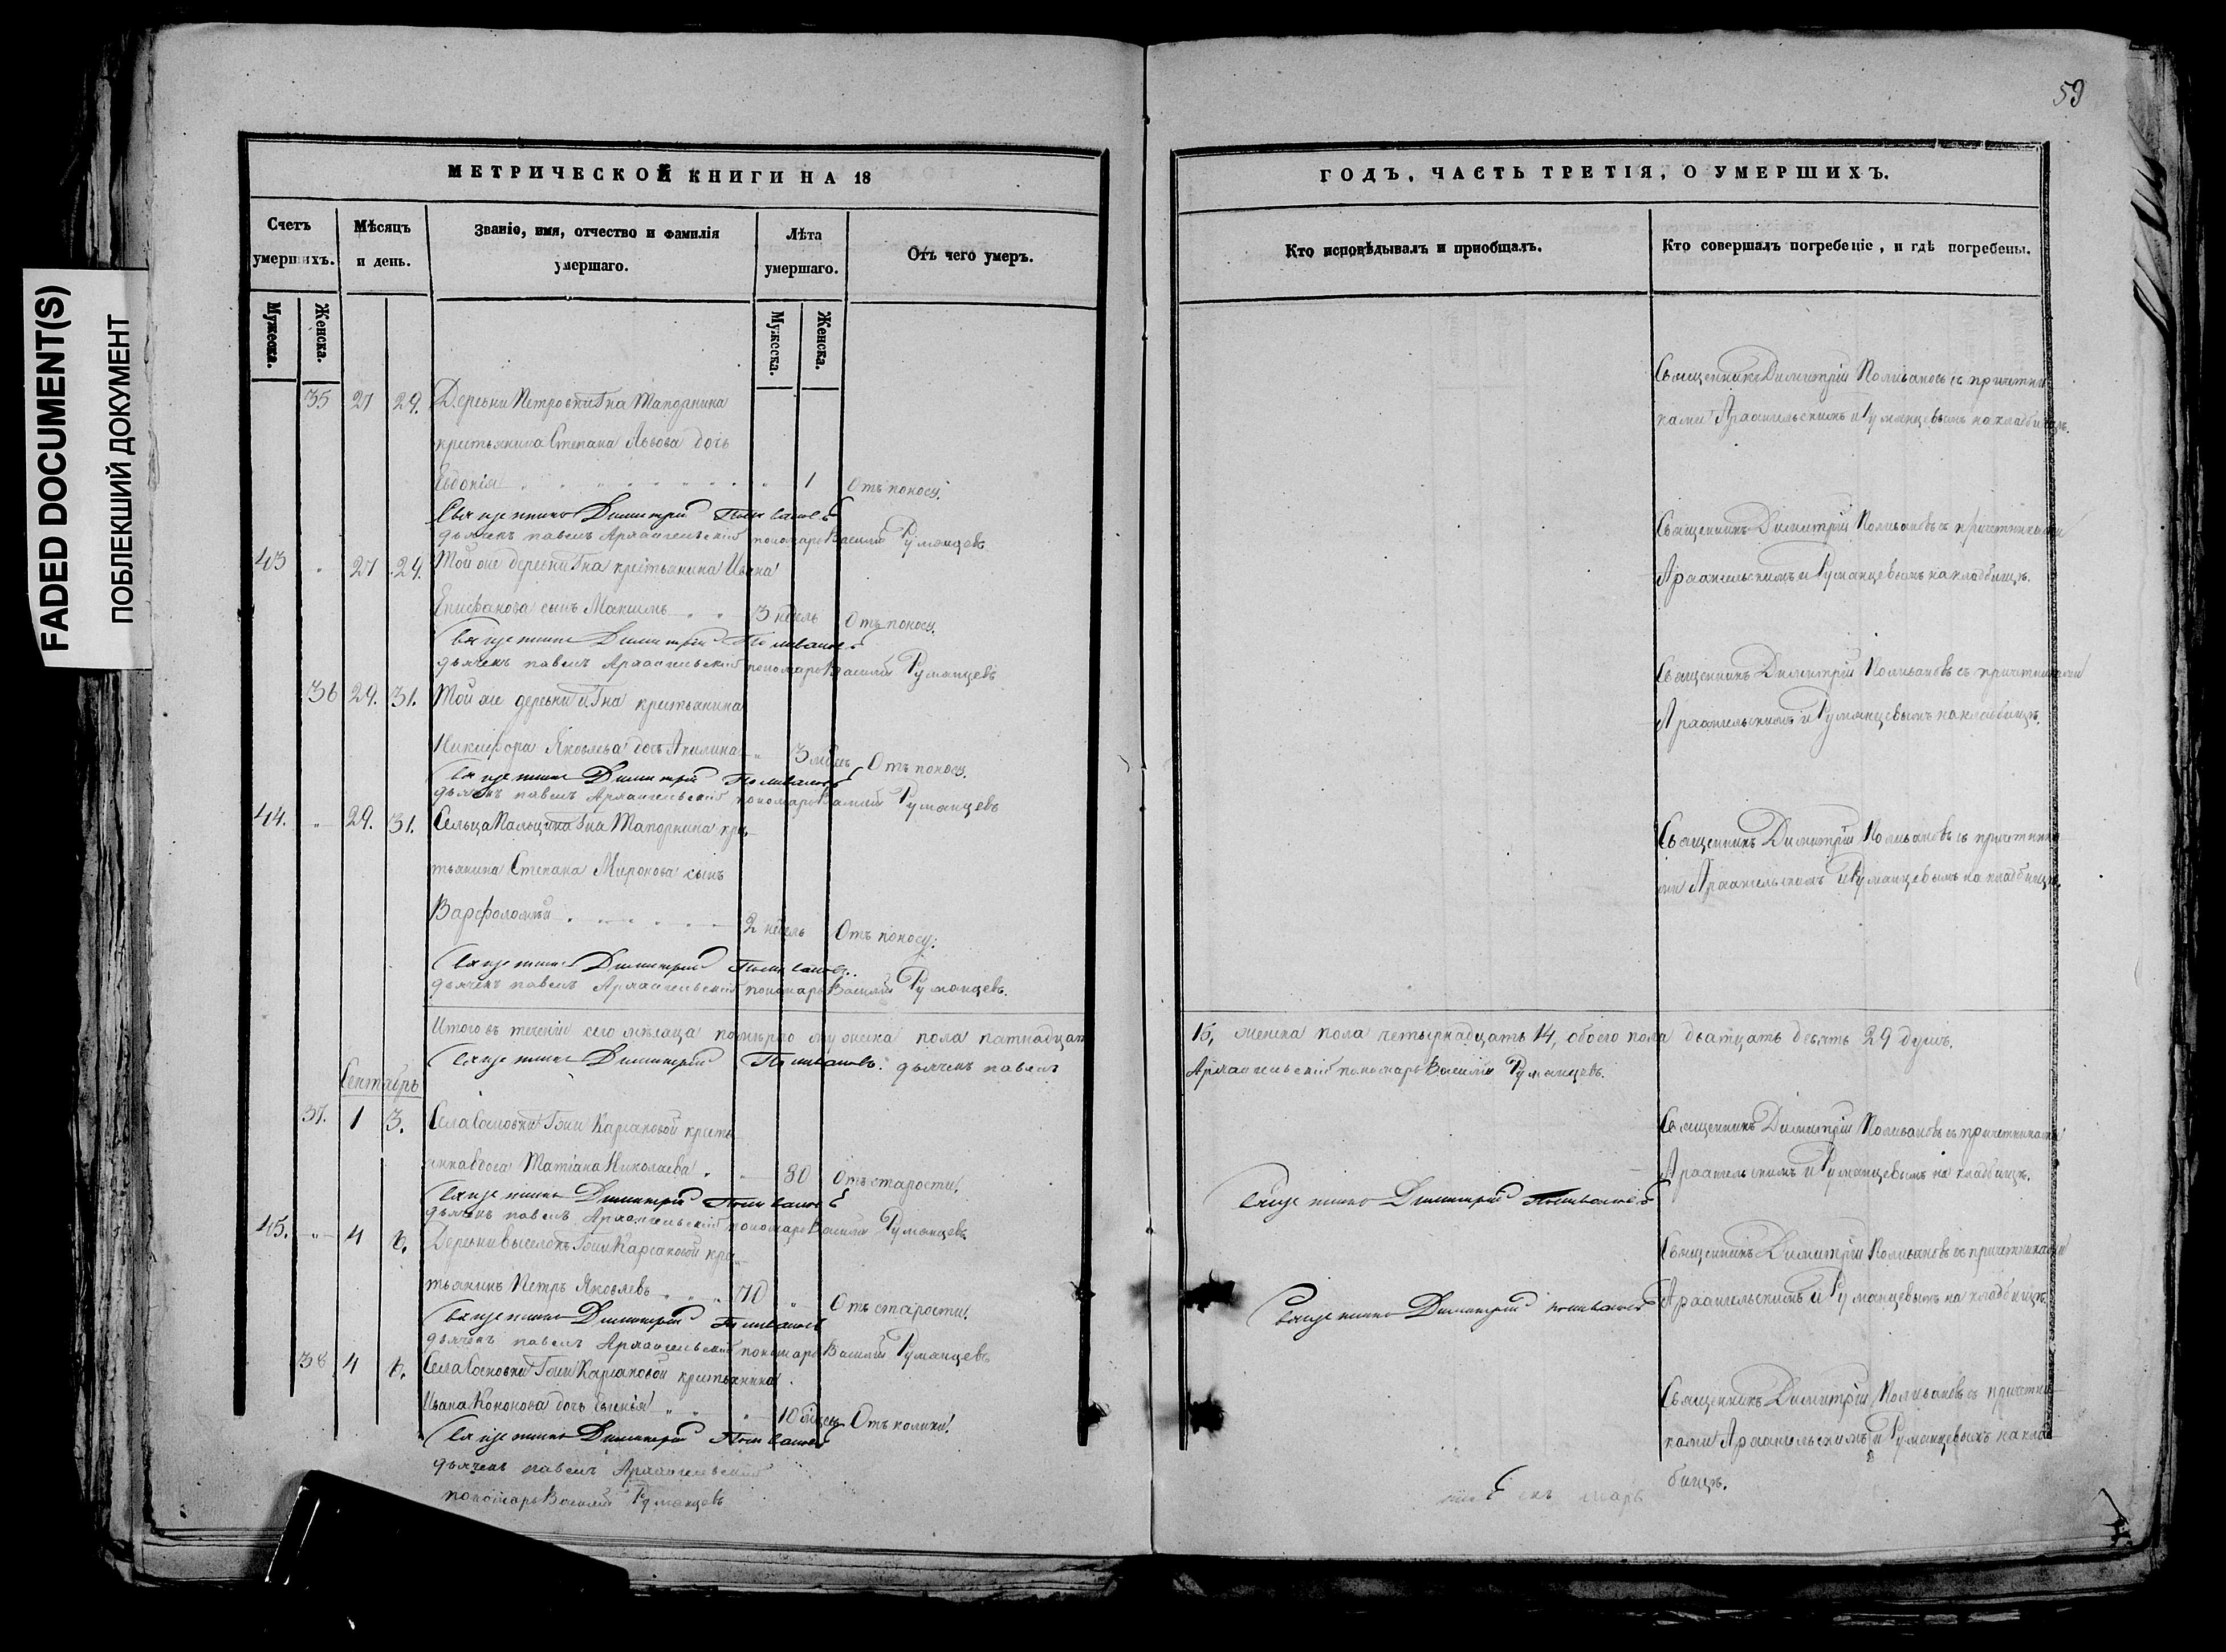 FADED DOCUMENT(S)
ПОБЛЕКШИЙ ДОКУМЕНТ
59
МЕТРИЧЕСКОЙ КНИГИ НА 18
Счетъ умершихъ.
Мужеска.
Женска.
Мѣсяцъ и день.
Званіе, имя, отчество и фамилія умершаго.
Лѣта умершаго.
Мужеска.
Женска.
Отъ чего умеръ.
35 27 29. Деревни Петровки Гна Тапорнина
крестьянина Степана Львова дочь
Евдокія 1 Отъ поносу.
Священникъ Димитрій Поливановъ
дьячекъ павелъ Архангельскій пономарь Василій Румянцевъ
43 " 27 29. Той же деревни Гна крестьянина Ивана
Епифанова сынъ Максимъ 3 недель Отъ поносу.
Священникъ Димитрій Поливановъ
дьячекъ павелъ Архангельскій пономарь Василій Румянцевъ
36 29. 31. Той же деревни и Гна крестьянина
Никифора Яковлева дочь Акилина " 3 Отъ поносу.
Священникъ Димитрій Поливановъ
дьячекъ павелъ Архангельскій пономарь Василій Румянцевъ
44. " 29. 31. Сельца Гна Тапорнина крес-
тьянина Степана Миронова сынъ
Варфоломѣй 2 недель Отъ поносу.
Священникъ Димитрій Поливановъ.
дьячекъ павелъ Архангельскій пономарь Василій Румянцевъ.
Итого въ теченіи сего мѣсяца померло мужеска пола пятнадцать
Священникъ Димитрій Поливановъ. дьячекъ павелъ
Сентябрь
37. 1 3. Села Сосновки Гжи Карсаковой кресть
Татіана Николаева " 80 Отъ старости.
Священникъ Димитрій Поливановъ
дьячекъ павелъ Архангельскій пономарь Василій Румянцевъ.
45. " 4 6. Деревни Выселокъ Гжи Карсаковой крес-
тьянинъ Петръ Яковлевъ 70 " Отъ старости.
Священникъ Димитрій Поливановъ
дьячекъ павелъ Архангельскій пономарь Василій Румянцевъ
38 4 6. Села Сосновки Гжи Карсаковой крестьянина
Ивана Кононова дочь Евгенія " 10 Отъ колики.
Священникъ Димитрій Поливановъ
дьячекъ павелъ Архангельскій
пономарь Василій Румянцевъ
ГОДЪ, ЧАСТЬ ТРЕТІЯ, О УМЕРШИХЪ.
Кто исповѣдывалъ и приобщалъ.
Кто совершалъ погребеніе, и гдѣ погребены.
Священникъ Димитрій Поливановъ съ причетни
ками Архангельскимъ и Румянцевымъ на кладбищѣ.
Священникъ Димитрій Поливановъ съ причетниками
Архангельскимъ и Румянцевымъ на кладбищѣ.
Священникъ Димитрій Поливановъ съ причетниками
Архангельскимъ и Румянцевымъ на кладбищѣ.
Священникъ Димитрій Поливановъ съ причетника
ми Архангельскимъ и Румянцевымъ на кладбищѣ.
15, женска пола четырнадцать 14, обоего пола двадцать девять 29 душъ.
Архангельскій пономарь Василій Румянцевъ.
Священникъ Димитрій Поливановъ съ причетниками
Архангельскимъ и Румянцевымъ на кладбищѣ.
Священникъ Димитрій Поливановъ
Священникъ Димитрій Поливановъ съ причетниками
Архангельскимъ и Румянцевымъ на кладбищѣ
Священникъ Димитрій поливановъ
Священникъ Димитрій Поливановъ съ причетни-
ками Архангельскимъ и Румянцевымъ на клад-
бищѣ.